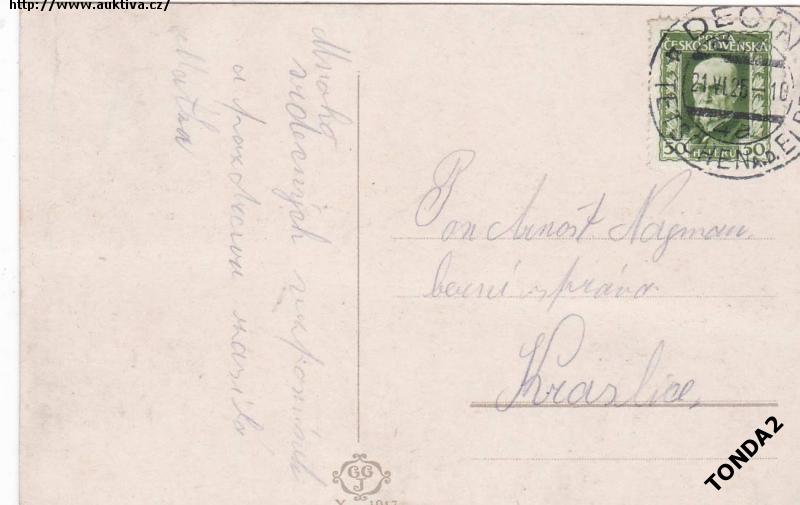 http://www.auktiva.cz/
Mnoho
srdečných vzpomínek
a pozdravu zasílá
Matka
POSTA
ČESKOSLOVENSKÁ
50 HALÉŘŮ 50
DĚČÍN
21.VI.25 10
TETSCHEN A.D. ELBE
Pan Arnošt Najman
berní správa
Kraslice,
GGJ
1917
TONDA2